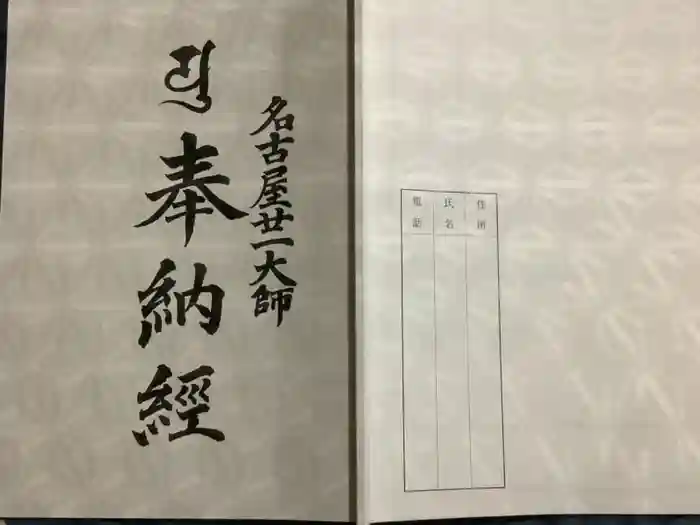 住所
氏名
電話
名古屋廿一大師
奉納經